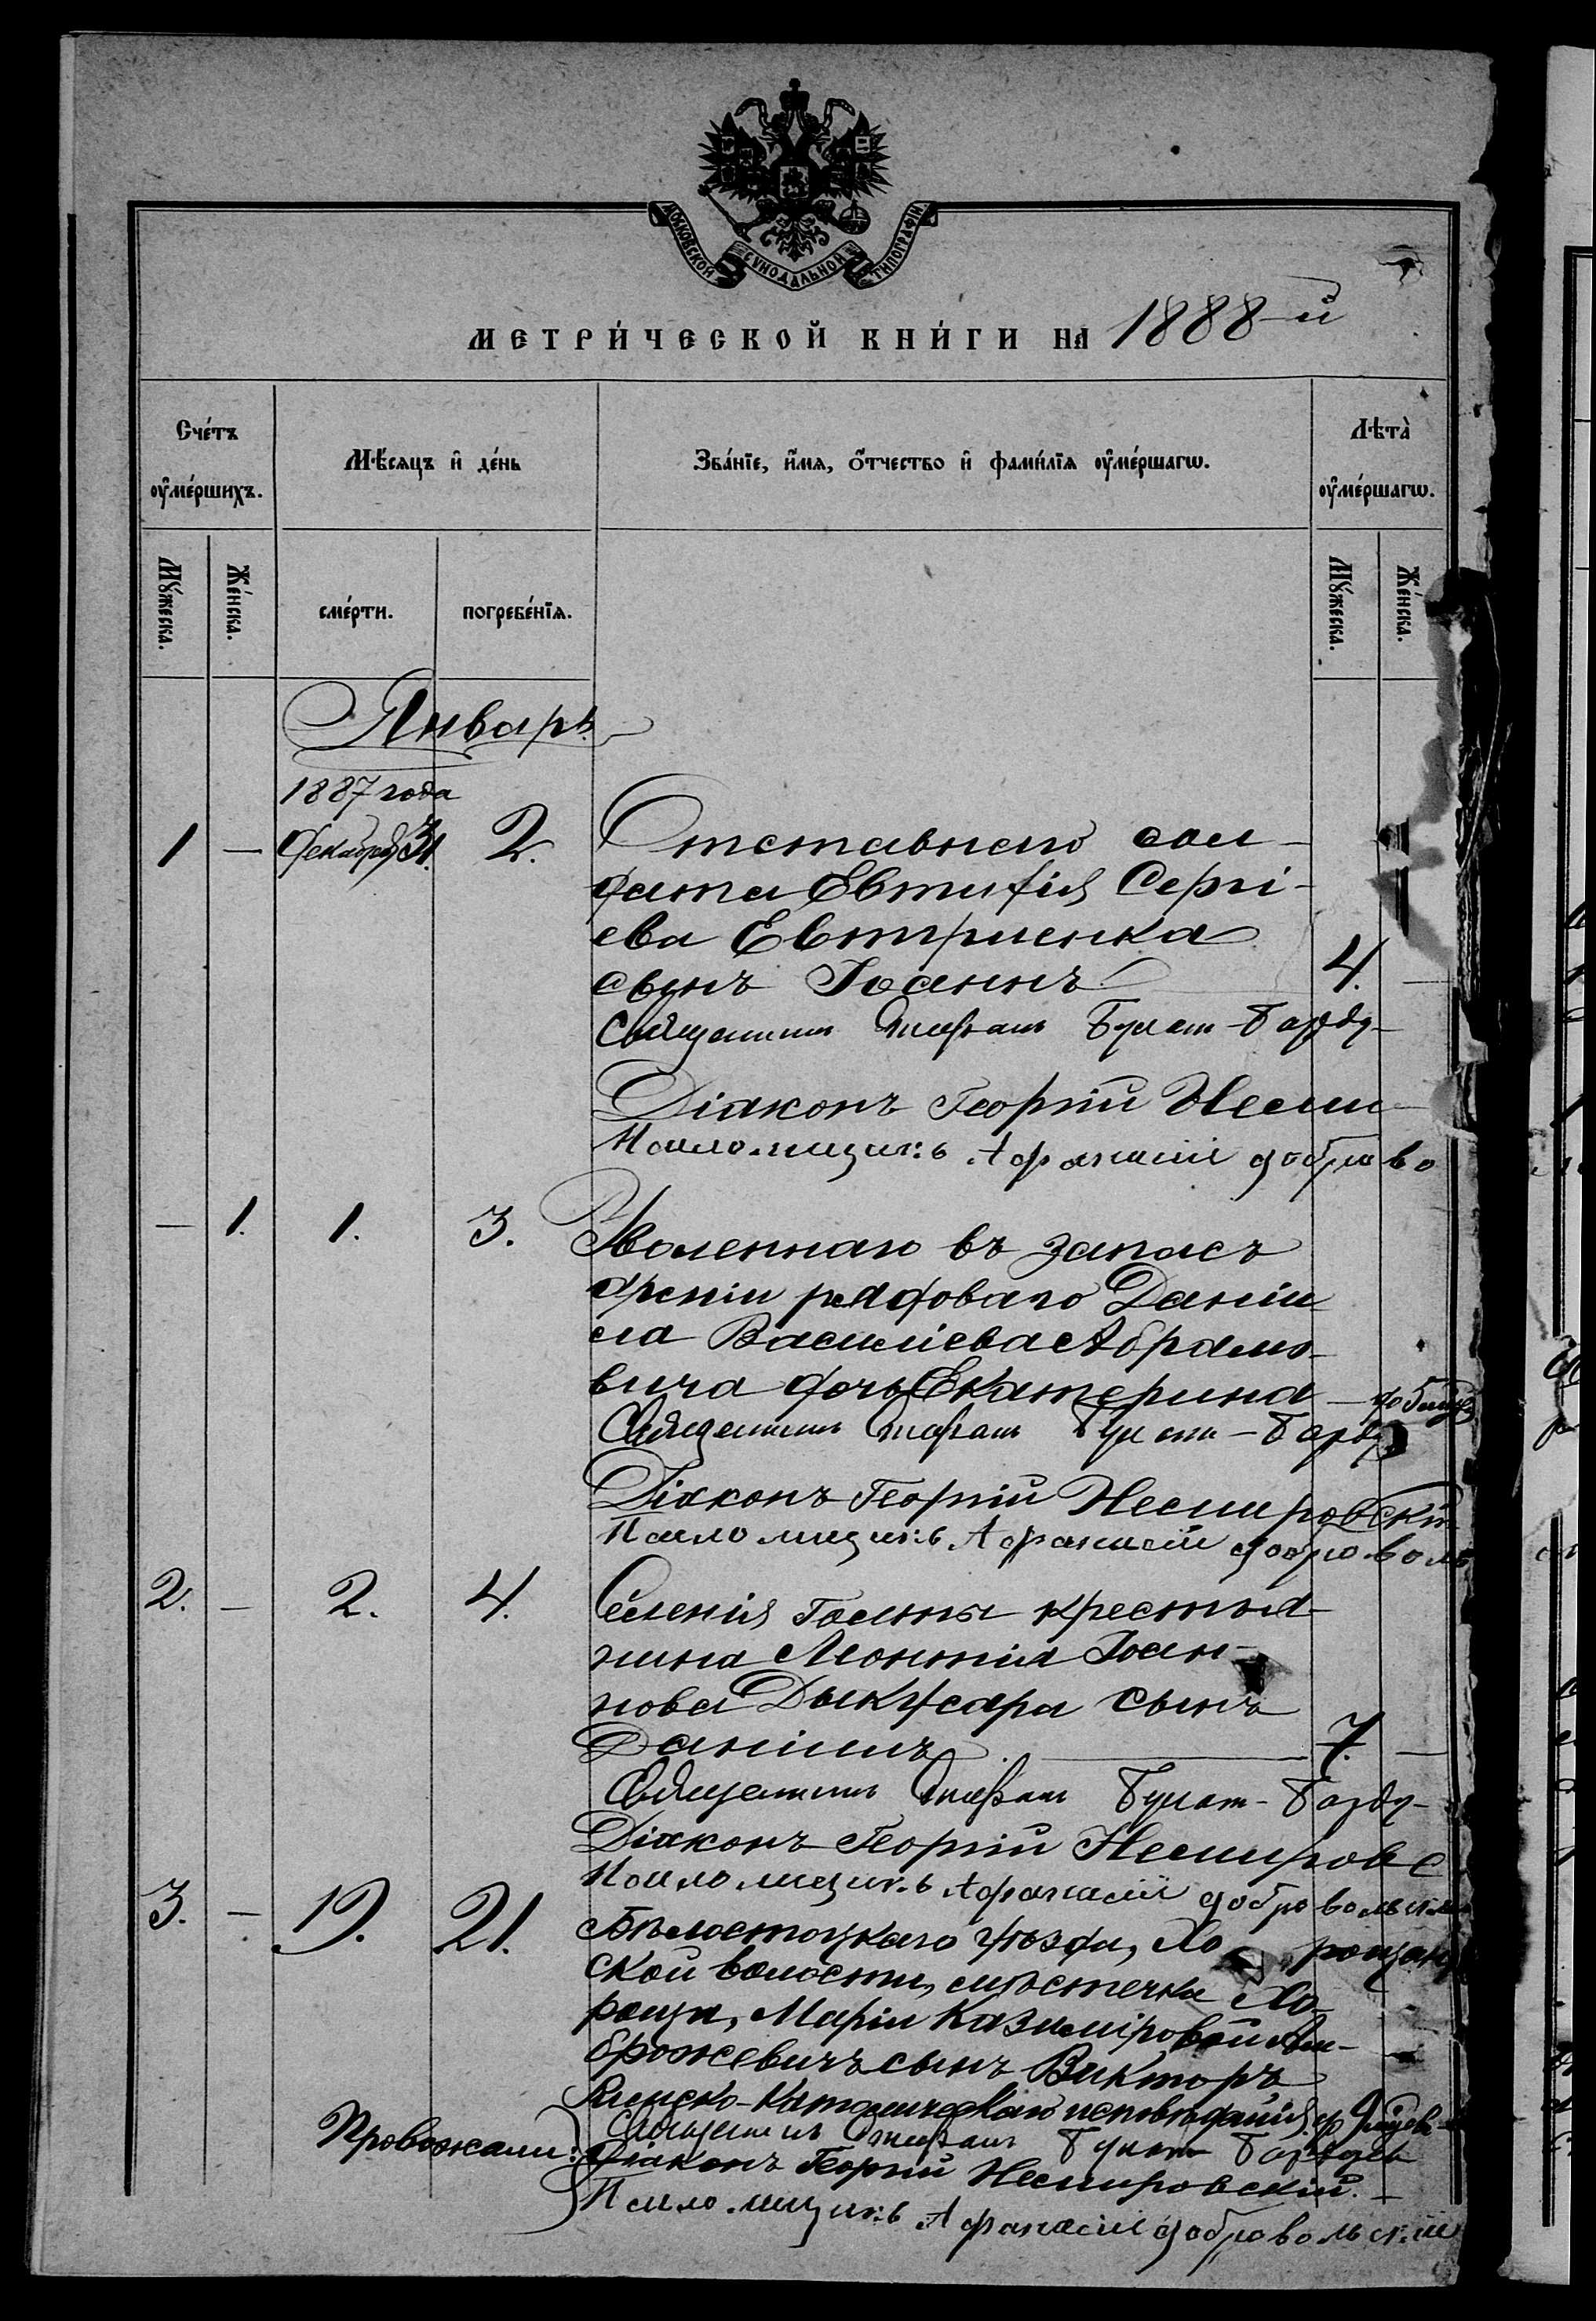 МОСКОВСКОЙ СѴНОДАЛЬНОЙ ТИПОГРАФІИ
МЕТРИ́ЧЕСКОЙ КНИ́ГИ НА 1888-й
Сче́тъ ᲂу҆ме́ршихъ.
Мѣ́сяцъ и҆ де́нь
Зва́нїе, и҆́мѧ, ѻ҆́тчество и҆ фами́лїѧ ᲂу҆ме́ршагѡ.
Лѣта̀ ᲂу҆ме́ршагѡ.
Мꙋ́жеска.
Же́нска.
сме́рти.
погребе́нїѧ.
Мꙋ́жеска.
Же́нска.
Январь
1887 года
1 — Декабря 31. 2. Отставного сол-
дата Евтихія Сергі-
ева
сынъ Іоаннъ 4. —
Священникъ Стефанъ Булат-
Діаконъ Георгій Неми
Псаломщикъ Афанасій Доброво
— 1. 1. 3. Уволеннаго въ запасъ
арміи рядоваго Даніи-
ла Василіева Абрамо-
вича дочь Екатерина —
Священникъ Стефанъ Булат-
Діаконъ Георгій Немировскій
Псаломщикъ Афанасій Доброволь
2. — 2. 4. Селенія Голины крестья-
нина Леонтія Іоан-
нова сынъ
Даніилъ 7. —
Священникъ Стефанъ Булат-
Діаконъ Георгій Немиров с
Псаломщикъ Афанасій Добровольск
3. — 19. 21. Бѣлостоцкаго уѣзда, Хо рощан
ской волости, мѣстечка Хо-
рощи, Маріи Казиміровой Ам-
брожевичъ сынъ Викторъ
Римско-Католическаго исповѣданія
Провожали: Священникъ Стефанъ Булат
Діаконъ Георгій Немировскій.
Псаломщикъ Афанасій Добровольскій